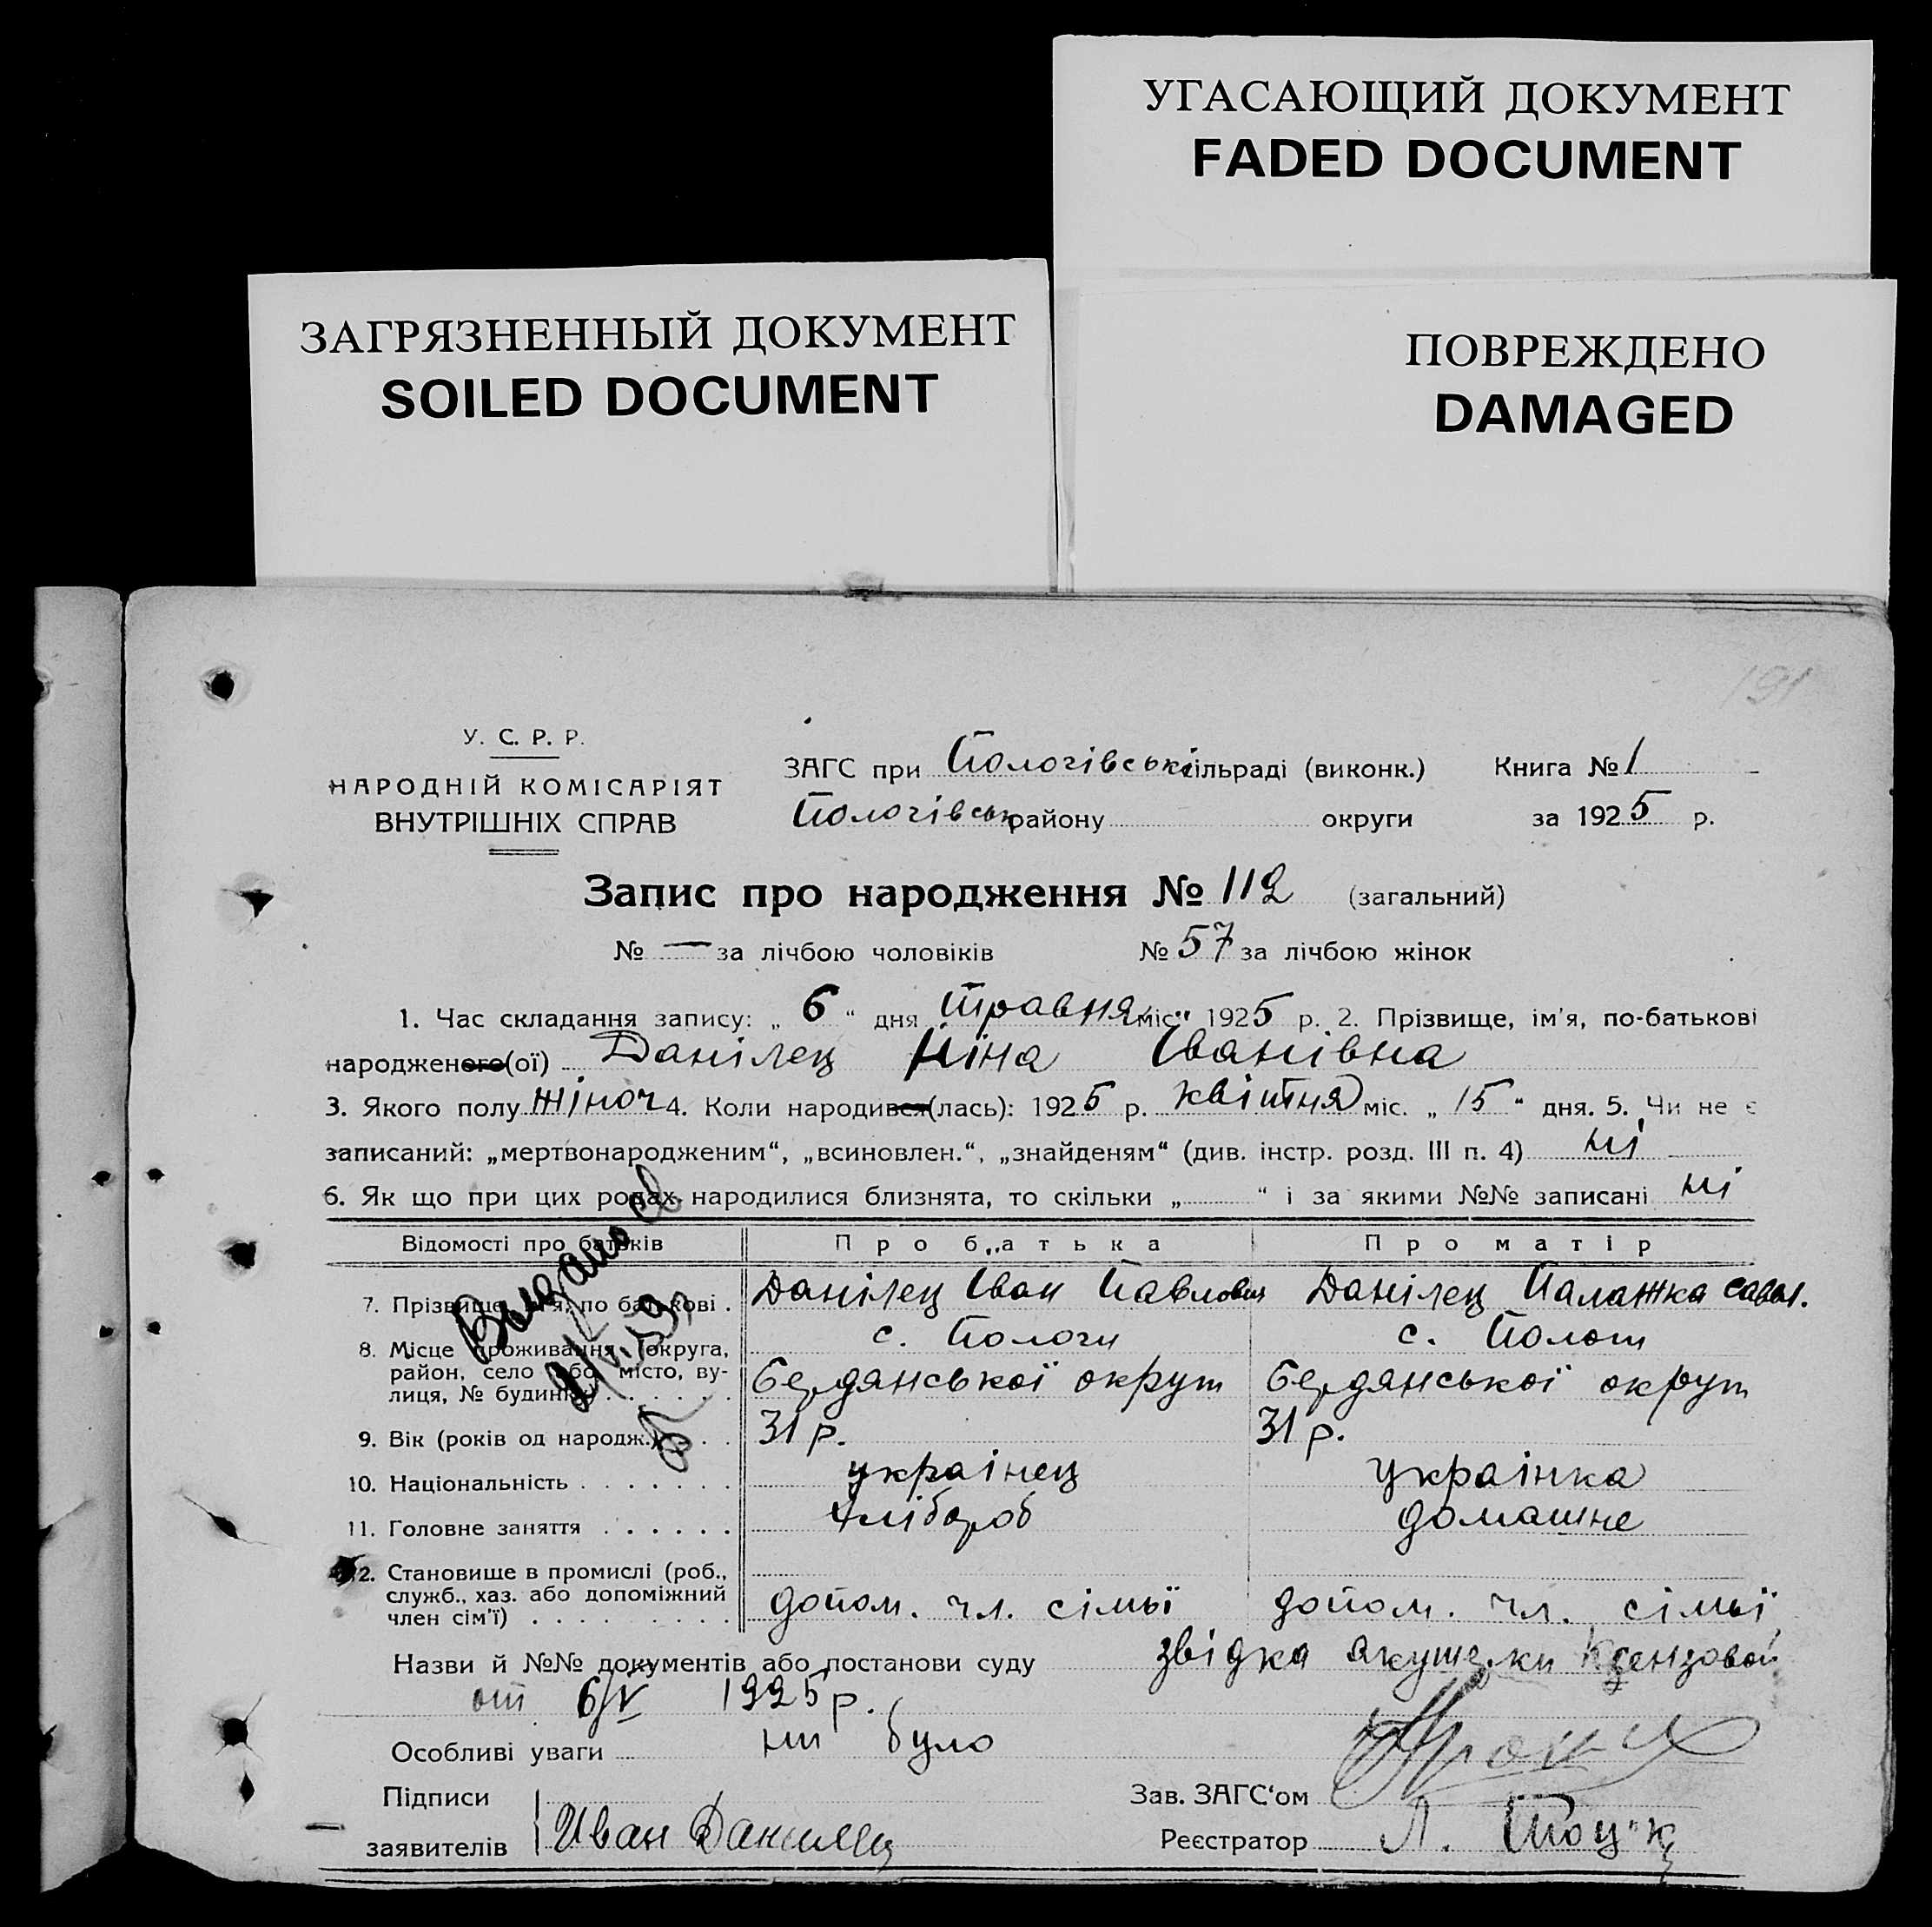 УГАСАЮЩИЙ ДОКУМЕНТ
FADED DOCUMENT
ЗАГРЯЗНЕННЫЙ ДОКУМЕНТ
SOILED DOCUMENT
ПОВРЕЖДЕНО
DAMAGED
191
У. С. Р. Р.
НАРОДНІЙ КОМІСАРІЯТ
ВНУТРІШНІХ СПРАВ
ЗАГС при Пологівській сільраді (виконк.) Книга № 1
Пологівськ району округи за 1925 р.
Запис про народження № 112 (загальний)
№ — за лічбою чоловіків № 57 за лічбою жінок
1. Час складання запису: „ 6 “ дня травня міс. 1925 р. 2. Прізвище, ім'я, по-батькові
народженого(ої) Данілец Ніна Іванівна
3. Якого полу жіноч 4. Коли народився(лась): 1925 р. квітня міс. „ 15 “ дня. 5. Чи не є
записаний: „мертвонародженим“, „всиновлен.“, „знайденям“ (див. інстр. розд. III п. 4) ні
6. Як що при цих родах народилися близнята, то скільки „ “ і за якими №№ записані ні
Відомості про батьків Про батька Про матір
7. Прізвище, ім'я, по батькові . Данілец Іван Павлович Данілец Палажка Савел.
8. Місце проживання (округа, район, село або місто, вулиця, № будинку) с. Пологи Бердянської округи с. Пологи Бердянської округи
9. Вік (років од народж.) 31 р. 31 р.
10. Національність украінец украінка
11. Головне заняття хлібороб домашне
12. Становище в промислі (роб., служб., хаз. або допоміжний член сім'ї) допом. чл. сімьї допом. чл. сімьї
Назви й №№ документів або постанови суду звідка акушерки Ксензовой
от 6/V 1925 р.
Особливі уваги ни було
Підписи
заявителів Иван Данилец
Зав. ЗАГС'ом
Реєстратор Л.